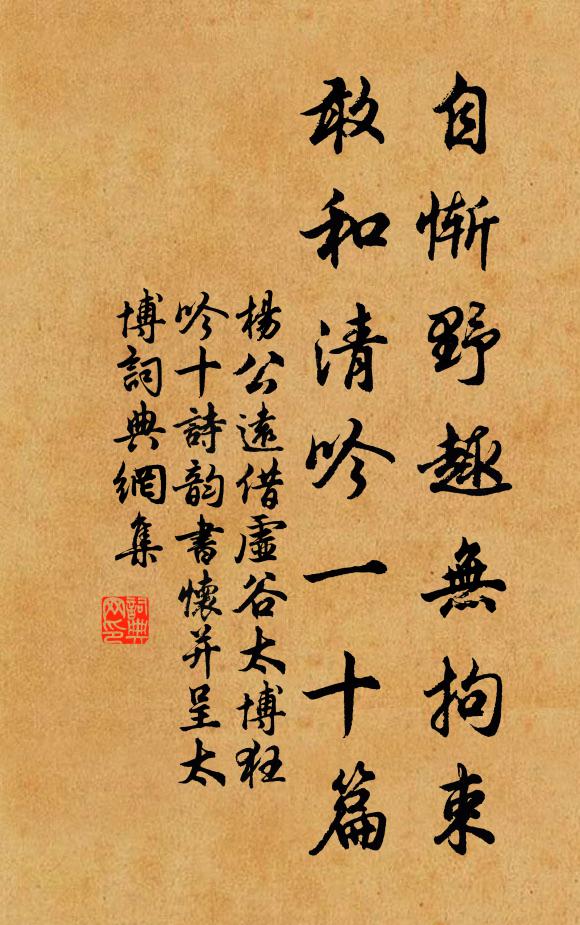 自慚野趣無拘束
敢和清吟一十篇
楊公遠借虛谷太博狂
吟十詩韵書懷并呈太
博詞典網集
詞典
网印